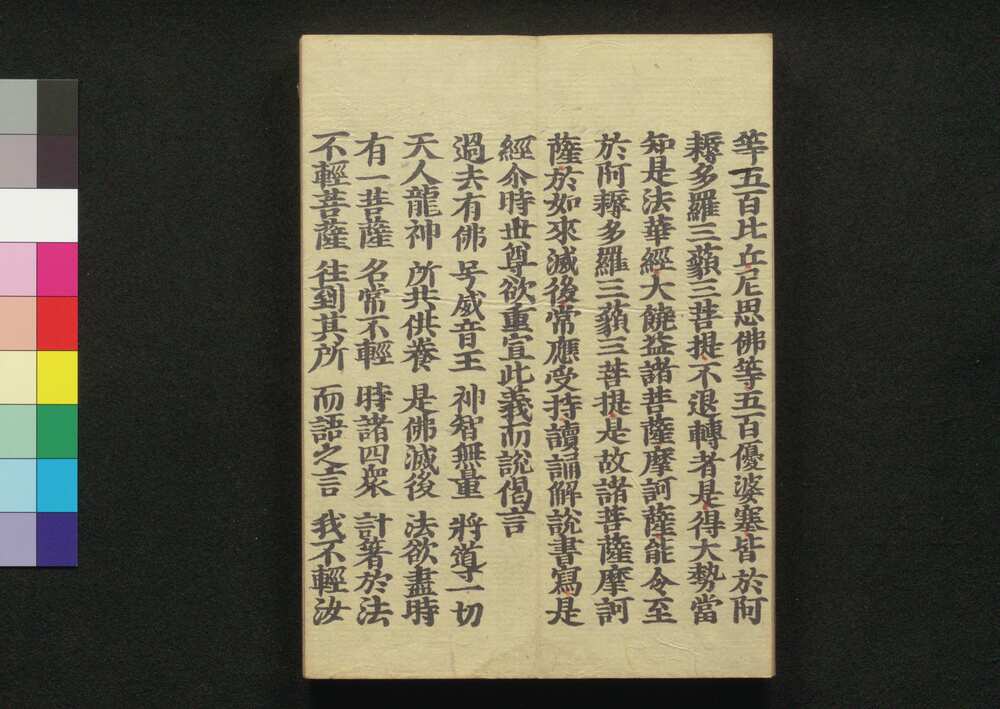 等五百比丘尼思佛等五百優婆塞皆於阿
耨多羅三藐三菩提不退轉者是得大勢當
知是法華經大饒益諸菩薩摩訶薩能令至
於阿耨多羅三藐三菩提是故諸菩薩摩訶
薩於如來滅後常應受持讀誦解說書寫是
經尒時世尊欲重宣此義而說偈言
過去有佛 号威音王 神智無量 將導一切
天人龍神 所共供養 是佛滅後 法欲盡時
有一菩薩 名常不輕 時諸四衆 計著於法
不輕菩薩 往到其所 而語之言 我不輕汝